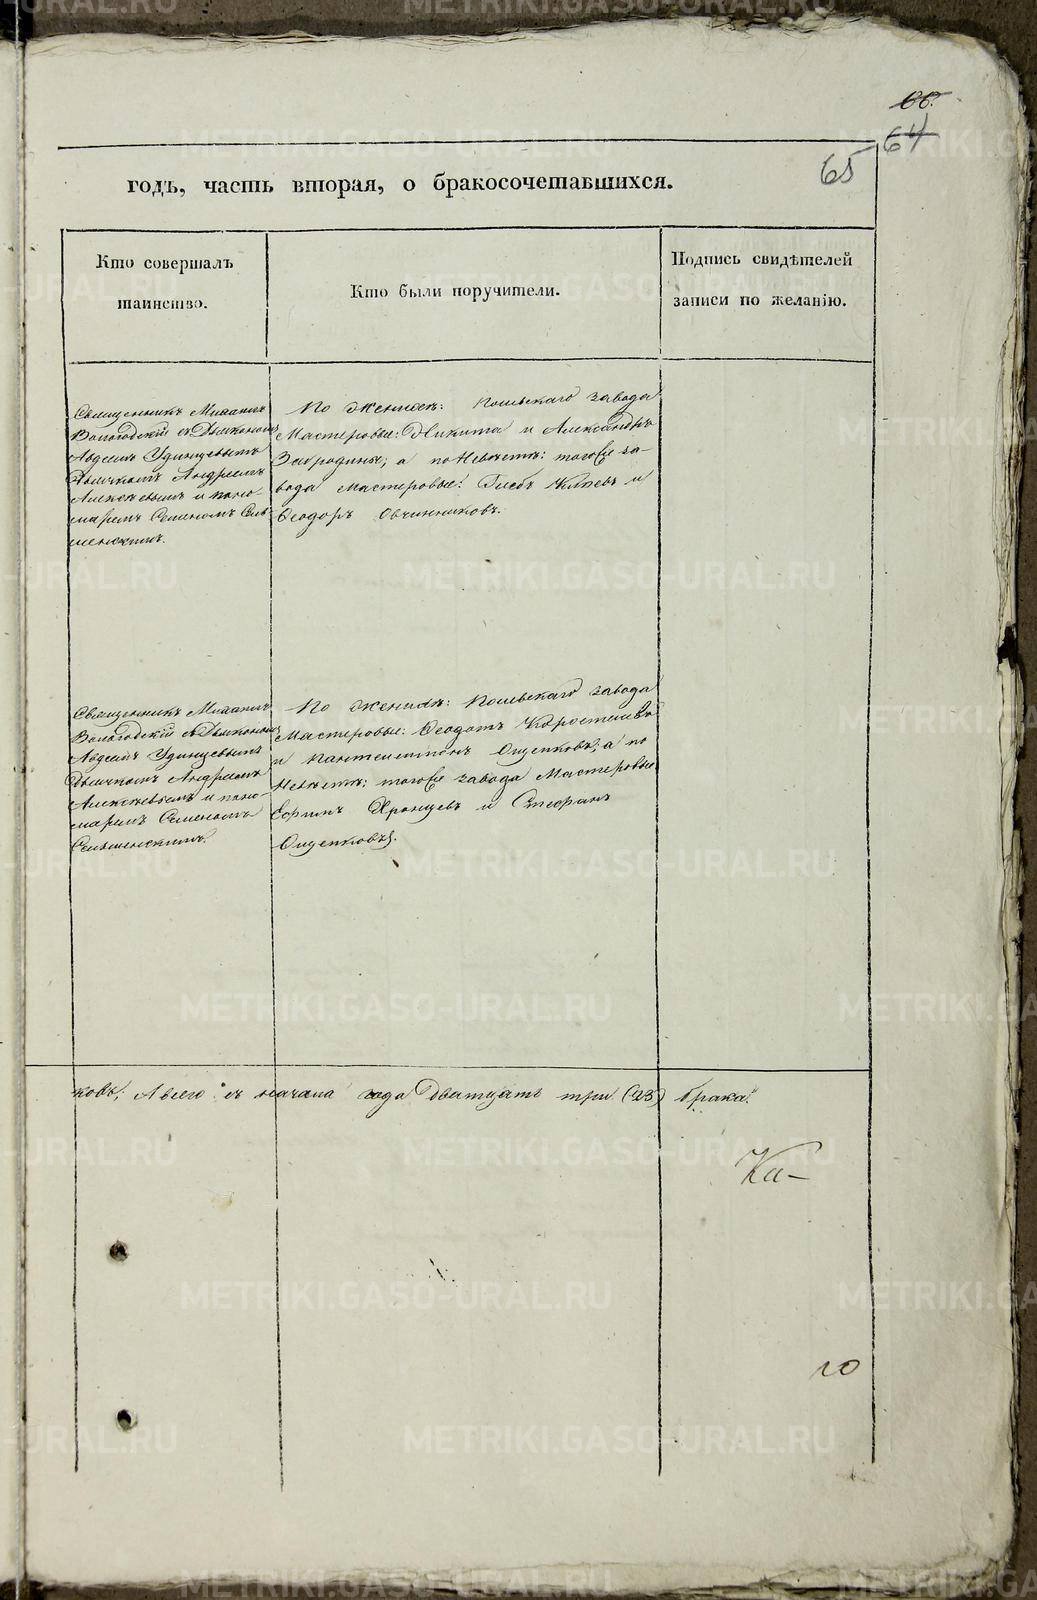 66.
64
65
годъ, часть вторая, о бракосочетавшихся.
Кто совершалъ
таинство.
Кто были поручители.
Подпись свидѣтелей
записи по желанію.
Священникъ Михаилъ
Вологодскій съ Дьякономъ
Авдеемъ Удинцевымъ
Дьячкомъ Андреемъ
Алексѣевымъ и поно-
маремъ Семеномъ
По женихѣ: завода
Мастеровые: Никита и Александръ
а по Невѣстѣ: тогоже за-
вода мастеровые: Глебъ и
Ѳеодоръ Овчинниковъ.
Священникъ Михаилъ
Вологодскій съ Дьякономъ
Авдеемъ Удинцевымъ
Дьячкомъ Андреемъ
Алексѣевымъ и поно-
маремъ Семеномъ
По женихѣ: завода
Мастеровые: Ѳеодотъ Коростелевъ
и Пантелеимонъ Ощепковъ; а по
Невѣстѣ: тогоже завода Мастеровые
Ефимъ и Стефанъ
Ощепковы.
ковъ; А всего съ начала года Двадцать три (23) брака.
Ка-
METRIKI.GASO-URAL.RU